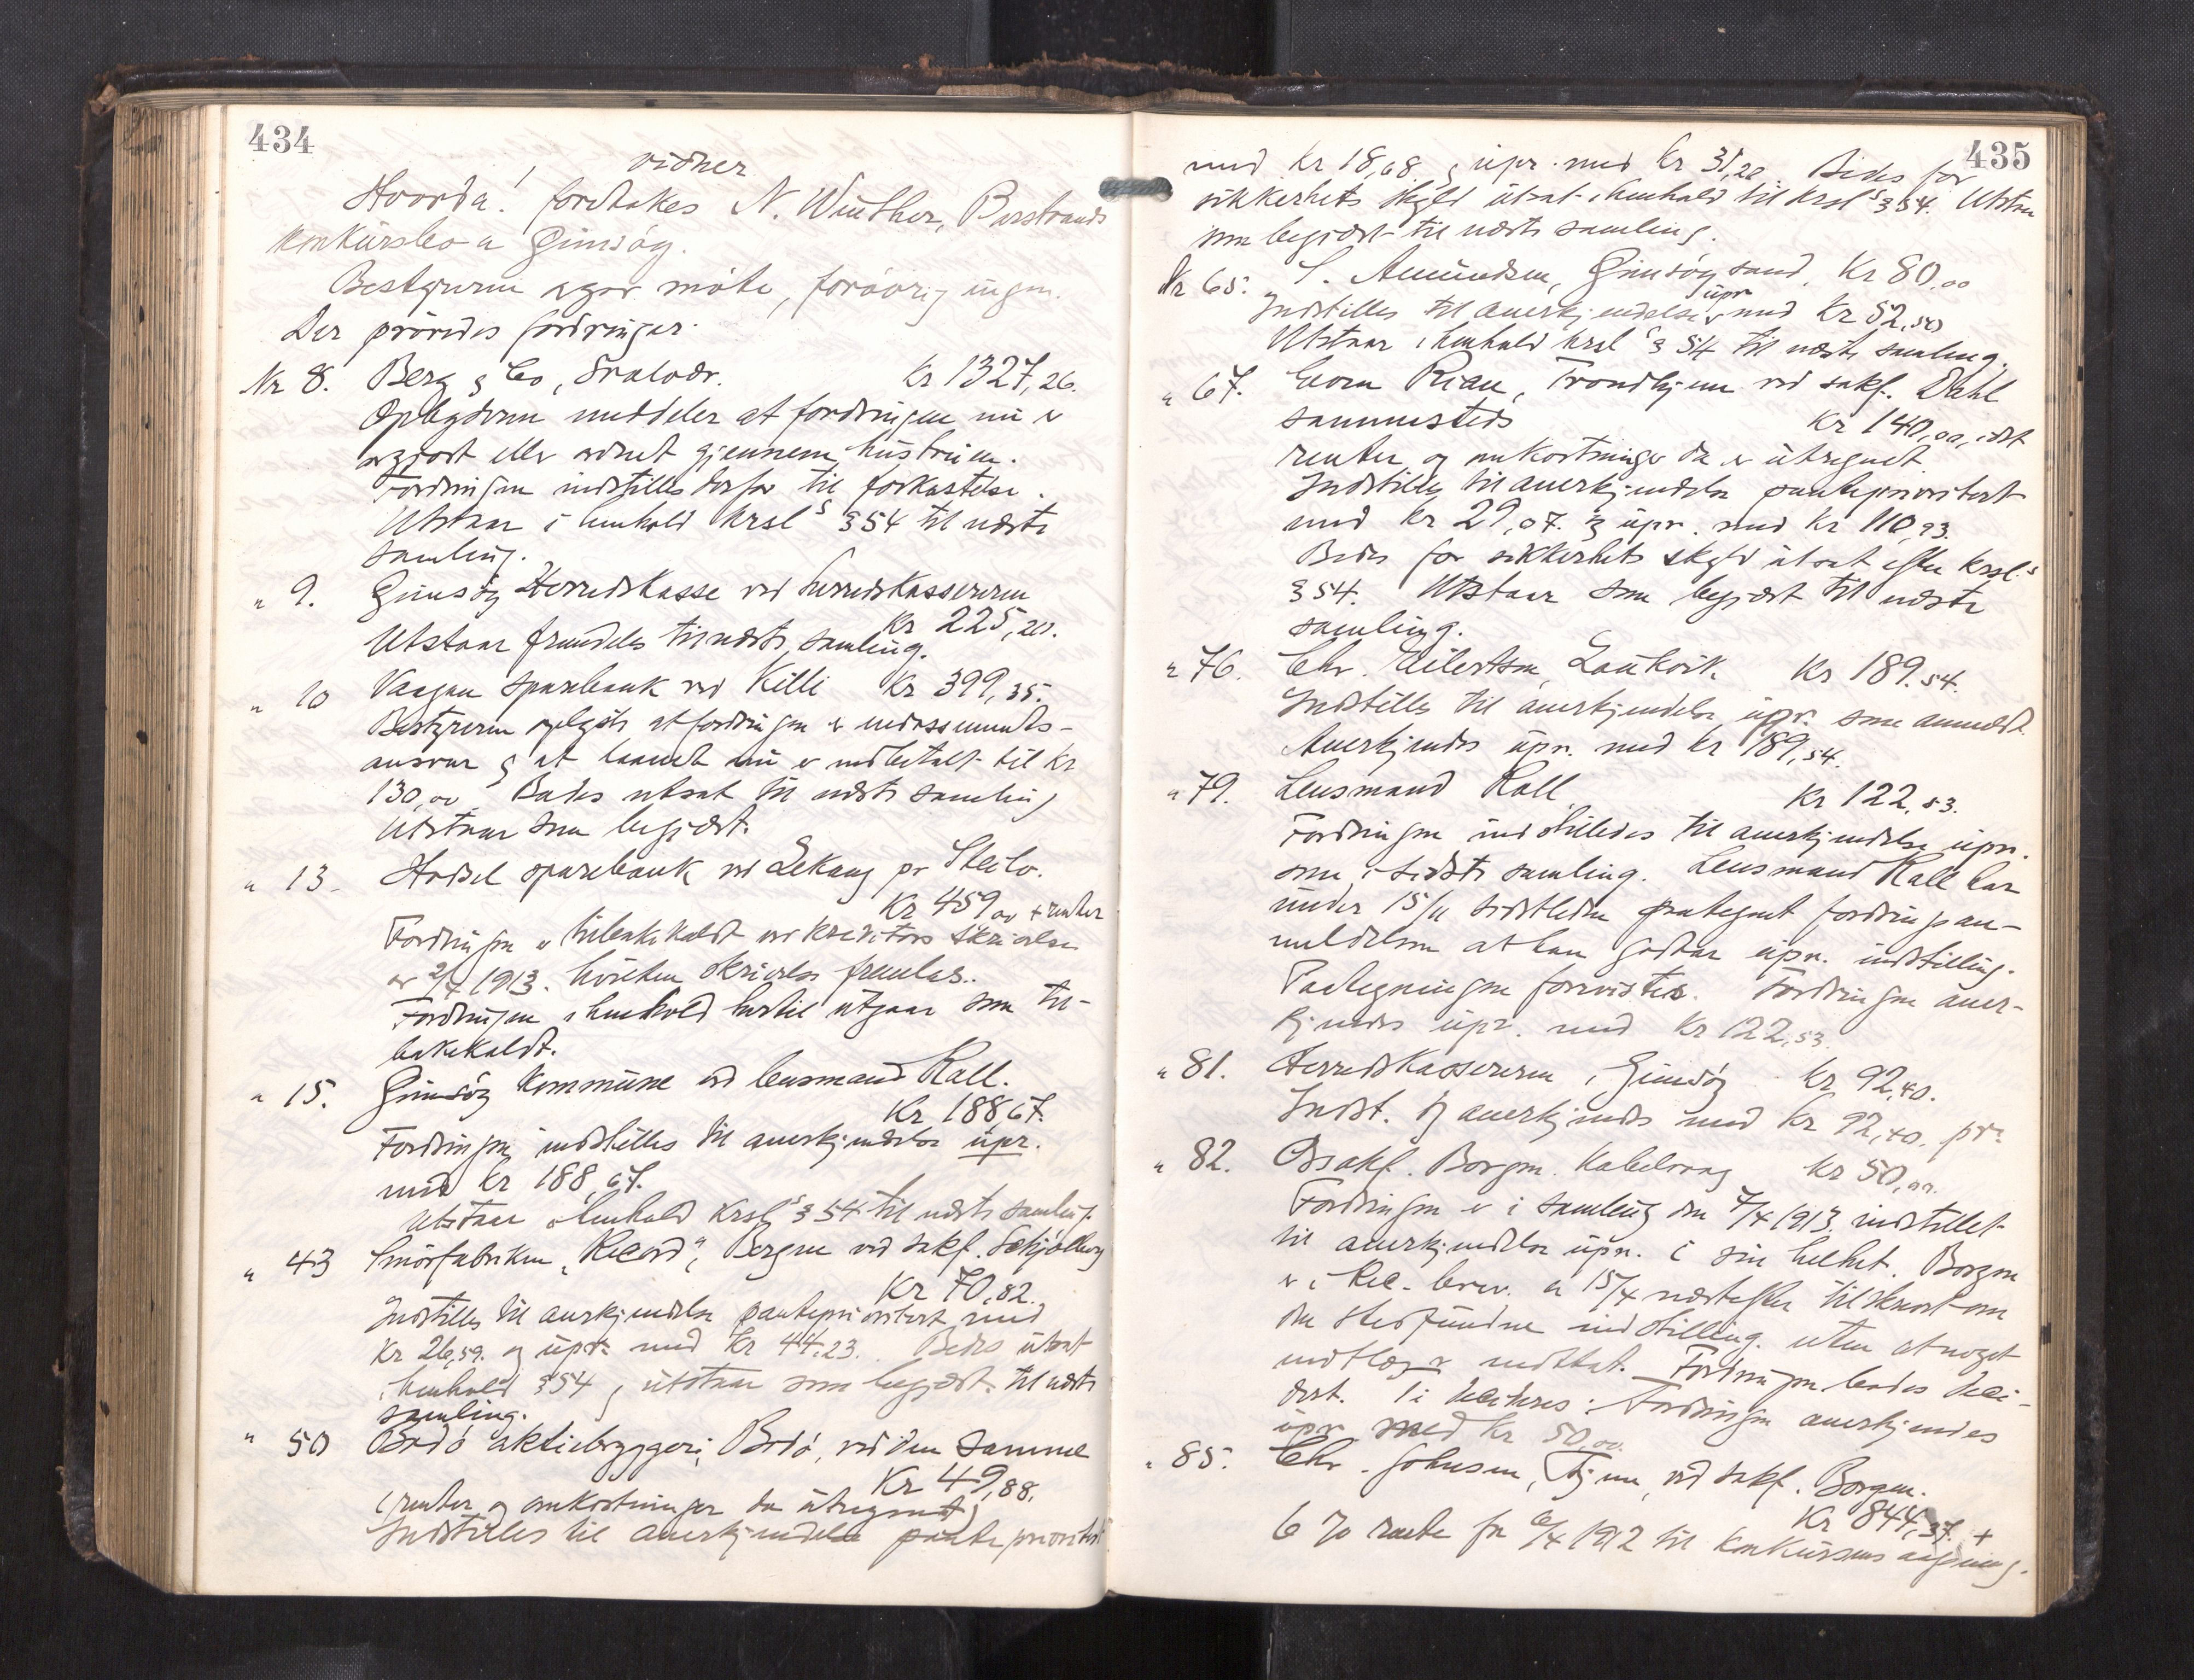 434
vidner
Hvorda! foretakes N. Winther, Barstrands
konkursbo a Gimsöy.
Bestyreren agar möte, forövrig ingen.
Der prövedes fordringer.
Nr 8. Berg & Co, Svolvær. Kr 1327,26.
Opbyderen meddeler at fordringen nu er
avgjort eller ordnet gjennem hustruen.
Fordringen indstilles derfor til forkastelse.
Utstaar i henhold krsl's § 54 til næste
samling.
" 9. Gimsöy Herredskasse ved herredskassereren
Kr 225,20.
Utstaar fremdeles til næste samling.
" 10 Vaagan sparebank ved Killi Kr 399,35.
Bestyreren oplyste at fordringen er indossements-
ansvar & at laanet nu er nedbetalt til kr
130,00. Bades utsat til næste samling
Utstaar som begjært.
" 13. Hadsel sparebank ved Lekang pr Steilo.
Kr 459,00 + renter
Fordringen er tilbakekaldt ved kreditors skrivelse
av 2/4 1913. hvilken skrivelse fremlas.
Fordringen i henhold hertil utgaar som til-
bakekaldt.
" 15. Gimsöy kommune ved lensmand Rall.
Kr 188,67.
Fordringen indstilles til anerkjendelse upr.
med kr 188,67.
Utstaar i henhold krsl's § 54 til næste samling.
" 43 Smörfabriken "Record", Bergen ved sakf. Schjölberg
Kr 70,82.
Indstilles til anerkjendelse panteprioritert med
Kr 26,59. og upr. med Kr 44.23. Bedes utsat
i henhold § 54 & utstaar som begjært til næste
samling.
" 50 Bodö aktiebryggeri, Bodö, ved den samme
Kr 49,88.
(renter og omkostninger da utregnet)
Indstilles til anerkjendelse panteprioritert
435
med kr 18,68. & upr. med kr 31,20. Bedes for
sikkerhets skyld utsat i henhold til krsl's § 54. Utstaar
som begjært til næste samling.
Nr 65. S. Amundsen, Gimsöysand, Kr 80,00
upr
Indstilles til anerkjendelse med Kr 52,50
Utstaar i henhold krsl's § 54 til næste samling.
" 67. Riau, Trondhjem ved sakf. Dahl
sammesteds Kr 140,00, idet
renter og omkostninger da er utregnet
Indstilles til anerkjendelse panteprioritert
med kr 29,07. & upr. med kr 110,93.
Bedes for sikkerhets skyld utsat efter krsl.'s
§ 54. Utstaar som begjært til næste
samling.
" 76. Chr. Eilertsen, Laukvik. Kr 189.54.
Indstilles til anerkjendelse upr. som anmeldt.
Anerkjendes upr. med kr 189,54.
" 79. Lensmand Rall Kr 122,53.
Fordringen indstilledes til anerkjendelse upr.
som i sidste samling. Lensmand Rall har
under 15/11 sidstleden paategnet fordringsan-
meldelsen at han godtar upr. indstilling.
Paategningen forevistes. Fordringen aner-
kjendes upr. med kr 122,53.
" 81. Herredskassereren i Gimsöy Kr 92,40.
Indst. og anerkjendes med kr 92,40. pr.
" 82. Osakf. Borgen. Kabelvaag Kr 50,00.
Fordringen er i samling den 7/4 1913. indstillet
til anerkjendelse upr. i sin helhet. Borgen
er i Rec. brev. a 15/4 næstefter tilskrevet om
den stedfundne indstilling. uten at noget
indlæg er indtat. Fordringen bedes deci-
dert. Ti decideres: Fordringen anerkjendes
upr med kr 50,00.
" 85. Chr. Johnsen, ved sakf. Borgen.
Kr 844,37. +
6 % rente fra 6/4 1912 til konkursens aapning.